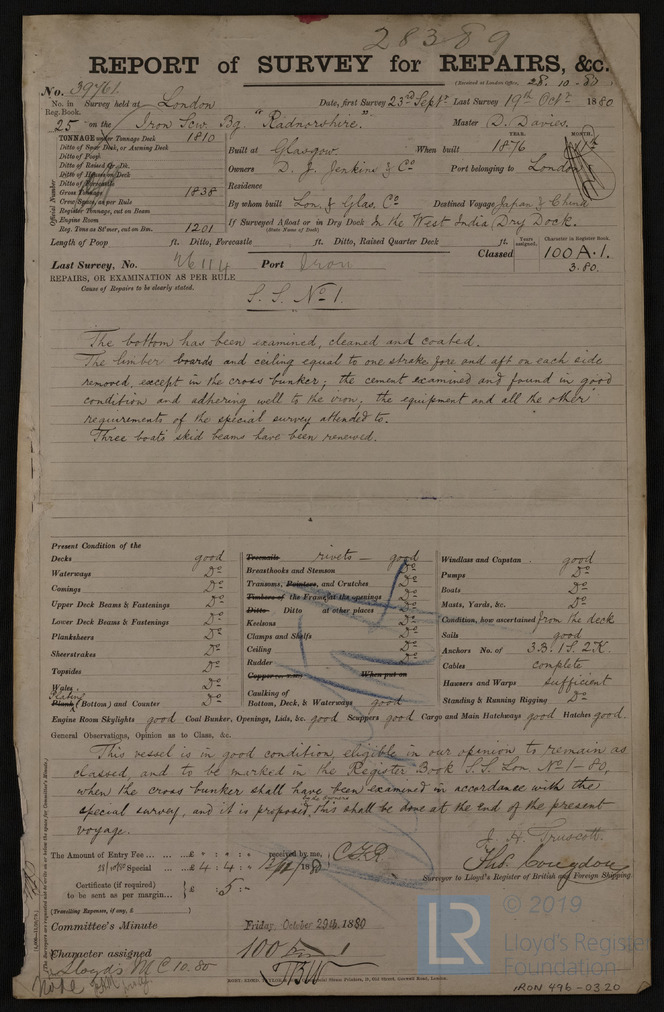 28389
REPORT of SURVEY for REPAIRS, &c.
(Received at London Office, 28. 10. 80.
No. 39761.
No. in Reg. Book. Survey held at London Date, first Survey 23rd Septr Last Survey 19th Octr 1880
25 on the Iron Scw. Bg. "Radnorshire." Master D. Davies.
TONNAGE under Tonnage Deck 1810
Ditto of Spar Deck, or Awning Deck
Ditto of Poop
Ditto of Raised Qr. Dk.
Ditto of Houses on Deck
Ditto of Forecastle
Gross Tonnage 1838
Crew Space, as per Rule
Register Tonnage, cut on Beam
Engine Room
Reg. Tons as St'mer, cut on Bm. 1201
Official Number
Built at Glasgow When built YEAR. 1876 MONTH.
Owners D. J. Jenkins & Co Port belonging to London
Residence
By whom built Lon. & Glas. Co Destined Voyage Japan & China
If Surveyed Afloat or in Dry Dock In the West India Dry Dock.
(State Name of Dock)
Length of Poop ft. Ditto, Forecastle ft. Ditto, Raised Quarter Deck ft.
Last Survey, No. 26114 Port Iron Classed Years assigned. Character in Register Book. 100 A. 1.
3. 80.
REPAIRS, OR EXAMINATION AS PER RULE
Cause of Repairs to be clearly stated.
S. S. No 1.
The bottom has been examined, cleaned and coated.
The limber boards and ceiling equal to one strake fore and aft on each side
removed, except in the cross bunker; the cement examined and found in good
condition and adhering well to the iron; the equipment and all the other
requirements of the special survey attended to.
Three boats skid beams have been renewed.
Present Condition of the
Decks good
Waterways Do
Comings Do
Upper Deck Beams & Fastenings Do
Lower Deck Beams & Fastenings Do
Planksheers Do
Sheerstrakes Do
Topsides Do
Wales Do
Plating
Plank (Bottom) and Counter Do
Treenails rivets — good
Breasthooks and Stemson Do
Transoms, Pointers, and Crutches Do
Timbers of the Frame at the openings Do
Ditto Ditto at other places Do
Keelsons Do
Clamps and Shelfs Do
Ceiling Do
Rudder Do
Copper or Y.M. When put on
Caulking of
Bottom, Deck, & Waterways good
Windlass and Capstan good
Pumps Do
Boats Do
Masts, Yards, &c. Do
Condition, how ascertained from the deck
Sails good
Anchors No. of 3.B. 1S. 2K.
Cables complete
Hawsers and Warps sufficient
Standing & Running Rigging Do
Engine Room Skylights good Coal Bunker, Openings, Lids, &c. good Scuppers good Cargo and Main Hatchways good Hatches good.
General Observations, Opinion as to Class, &c.
This vessel is in good condition, eligible in our opinion to remain as
classed, and to be marked in the Register Book S.S. Lon. No 1 - 80,
when the cross bunker shall have been examined in accordance with the
special survey, and it is proposed by the Owners this shall be done at the end of the present
voyage.
J. H. Truscott.
The Amount of Entry Fee ... £ : : received by me,
Special ... £ 4 : 4 : 1880
Certificate (if required) to be sent as per margin... £ : 5 :
(Travelling Expenses, if any, £ )
Thos. Congdon
Surveyor to Lloyd's Register of British and Foreign Shipping.
Committee's Minute Friday October 29th, 1880
Character assigned 100 1
Lloyd's M C 10. 80
LR
© 2019
Lloyd's Register
Foundation
IRON 496-0320